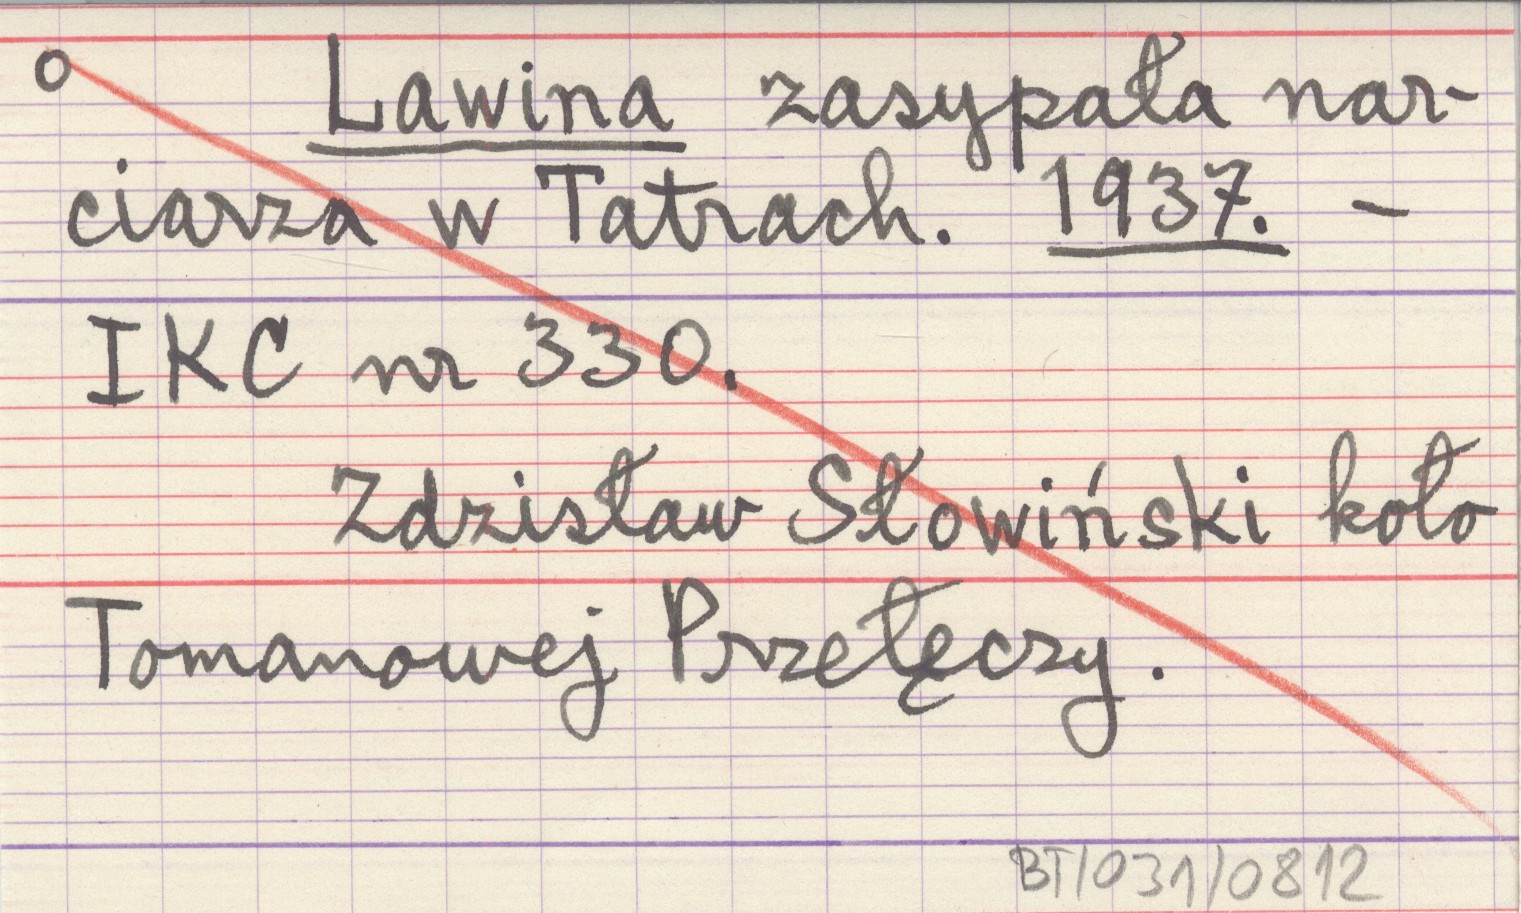 o Lawina zasypała nar-
ciarza w Tatrach. 1937. –
IKC nr 330.
Zdzisław Słowiński koło
Tomanowej Przełęczy.
BT/031/0812